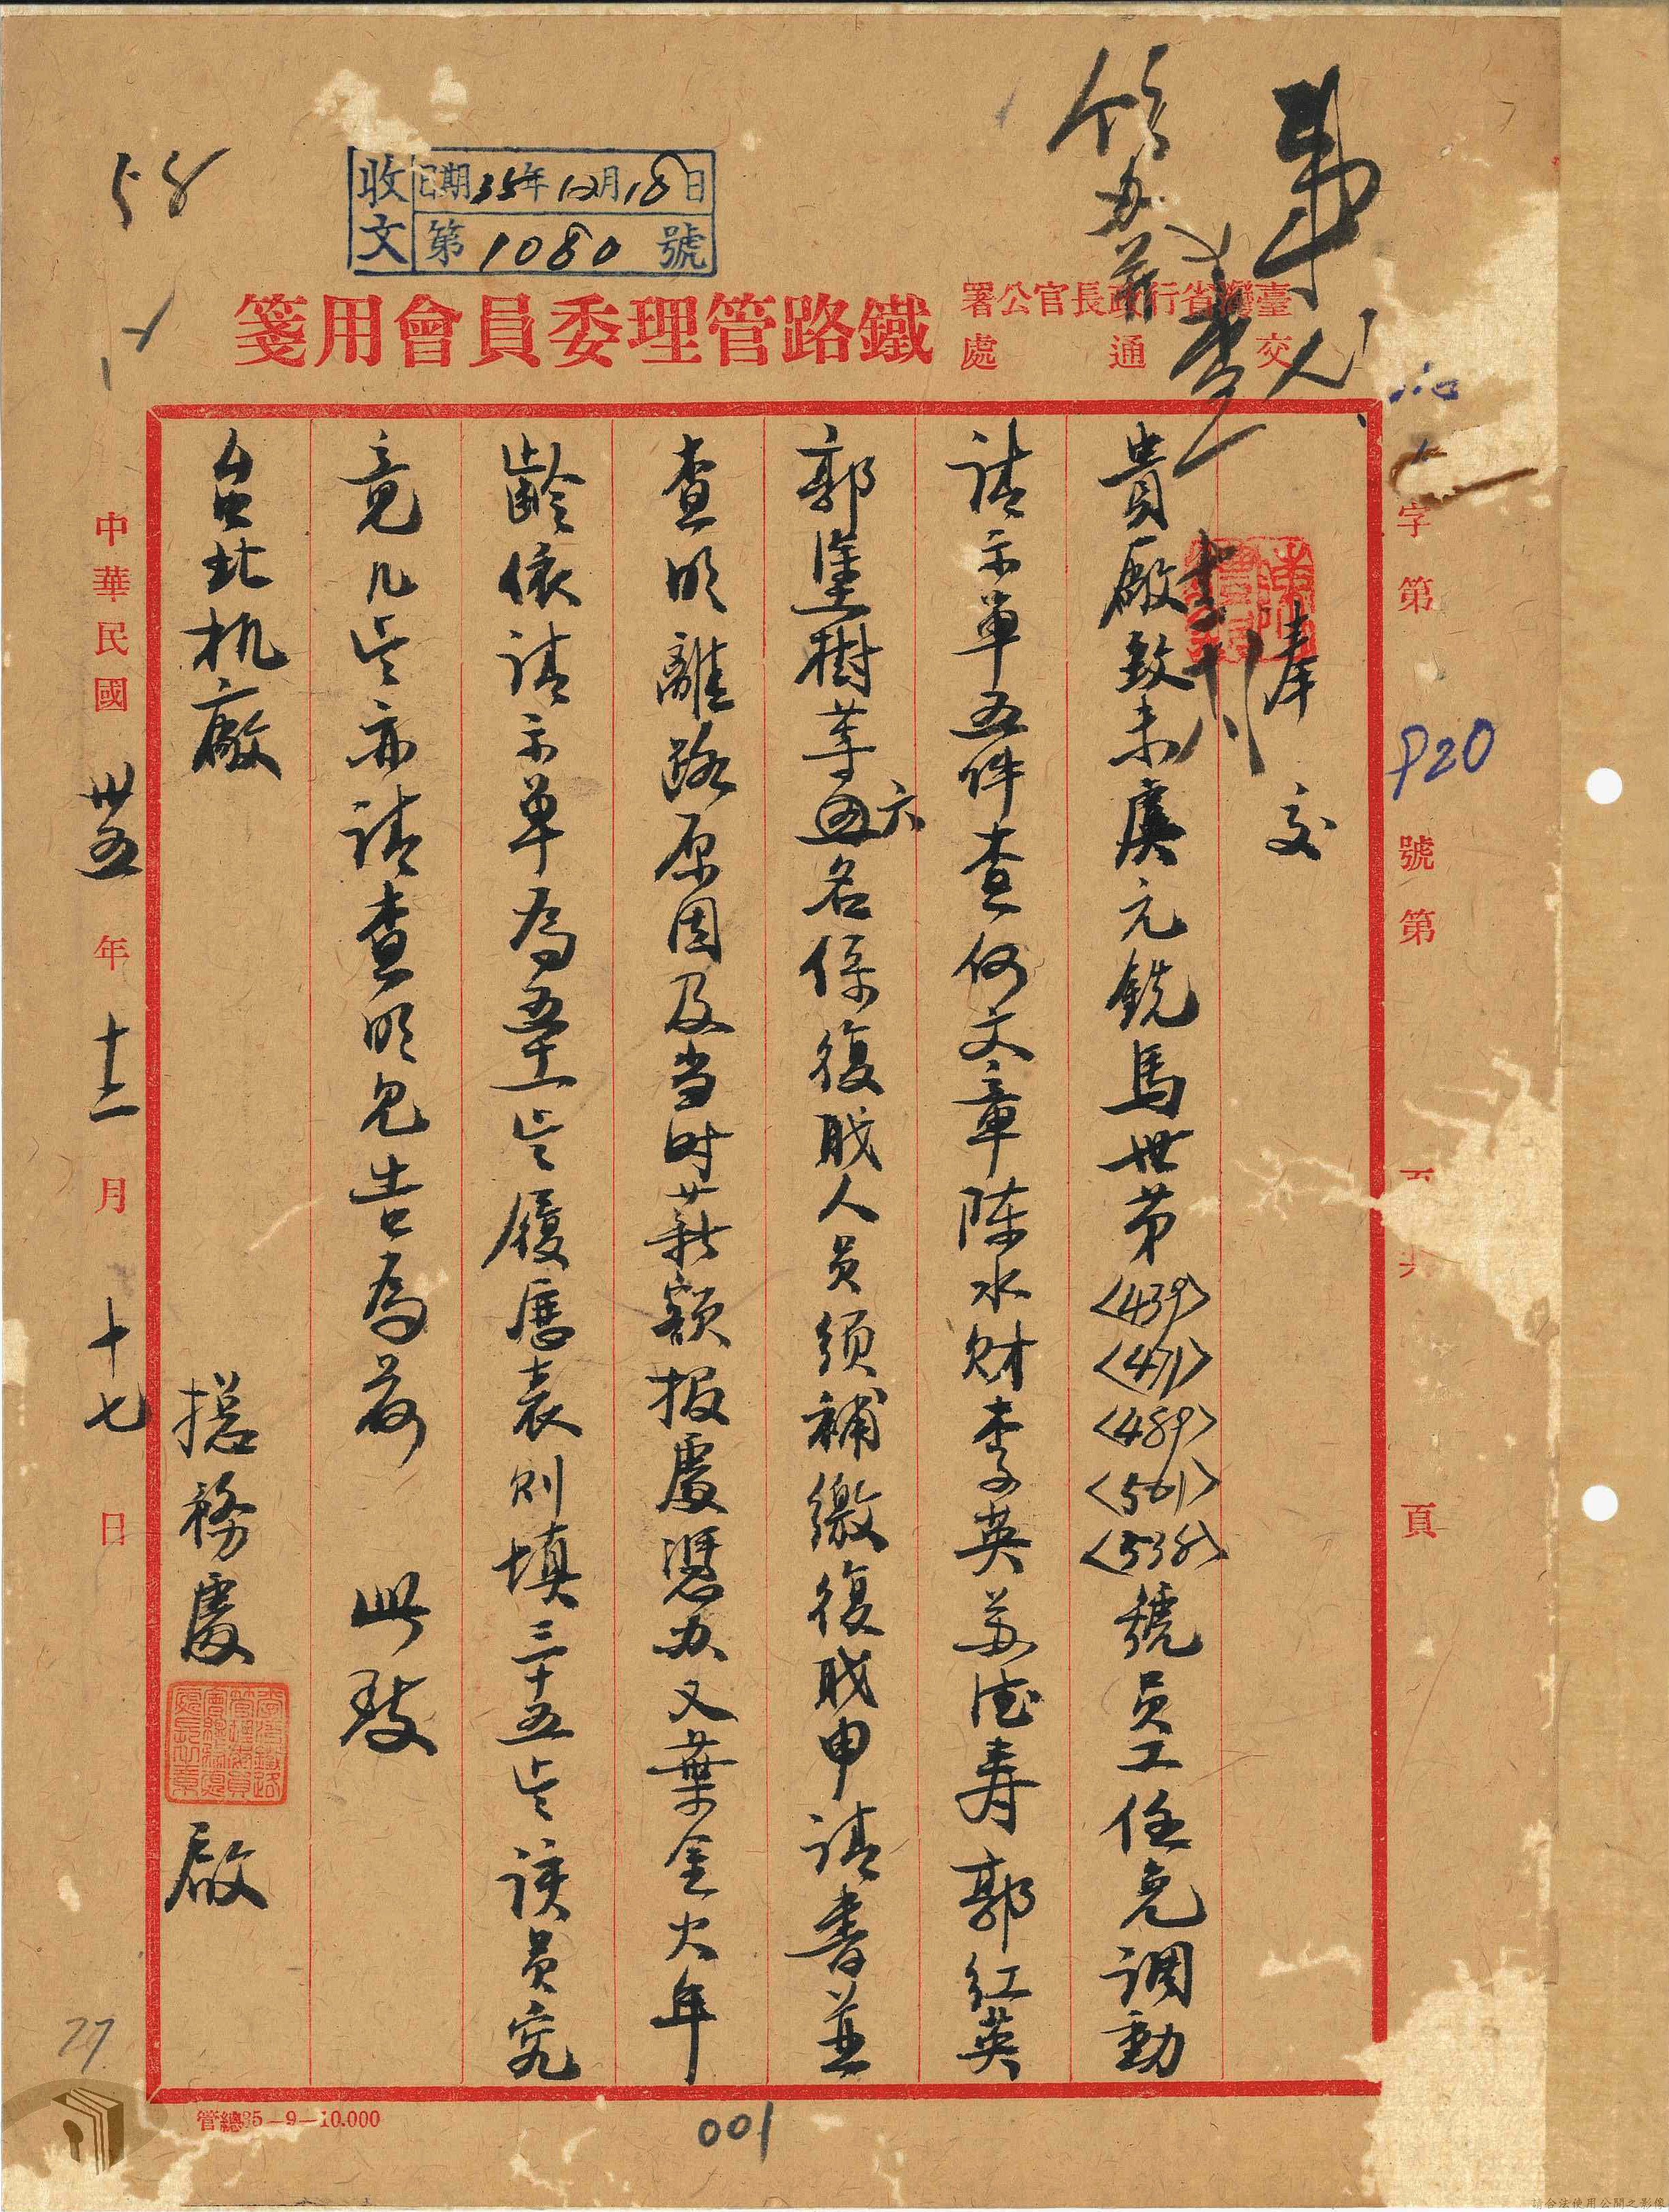 58
收文 日期35年12月18日
第1080號
臺灣省行政長官公署
交通處
鐵路管理委員會用箋
字第 號第 頁
P20
奉 交
貴廠致未虞元銑馬世第<439><471><489><501><538>號員工任免調動
請示單五件查何文章陳水財李英蘇德寿郭紅英
郭隆樹等六名係復職人員須補繳復職申請書並
查明離路原因及当时薪額报處憑办又葉金火年
齡依請示单為五十一岁履歷表則填三十五岁該員究
竟几岁亦請查明見告為荷 此致
台北机廠
總務處 啟
中華民國卅五年十二月十七日
管總35-9-10.000
001
77